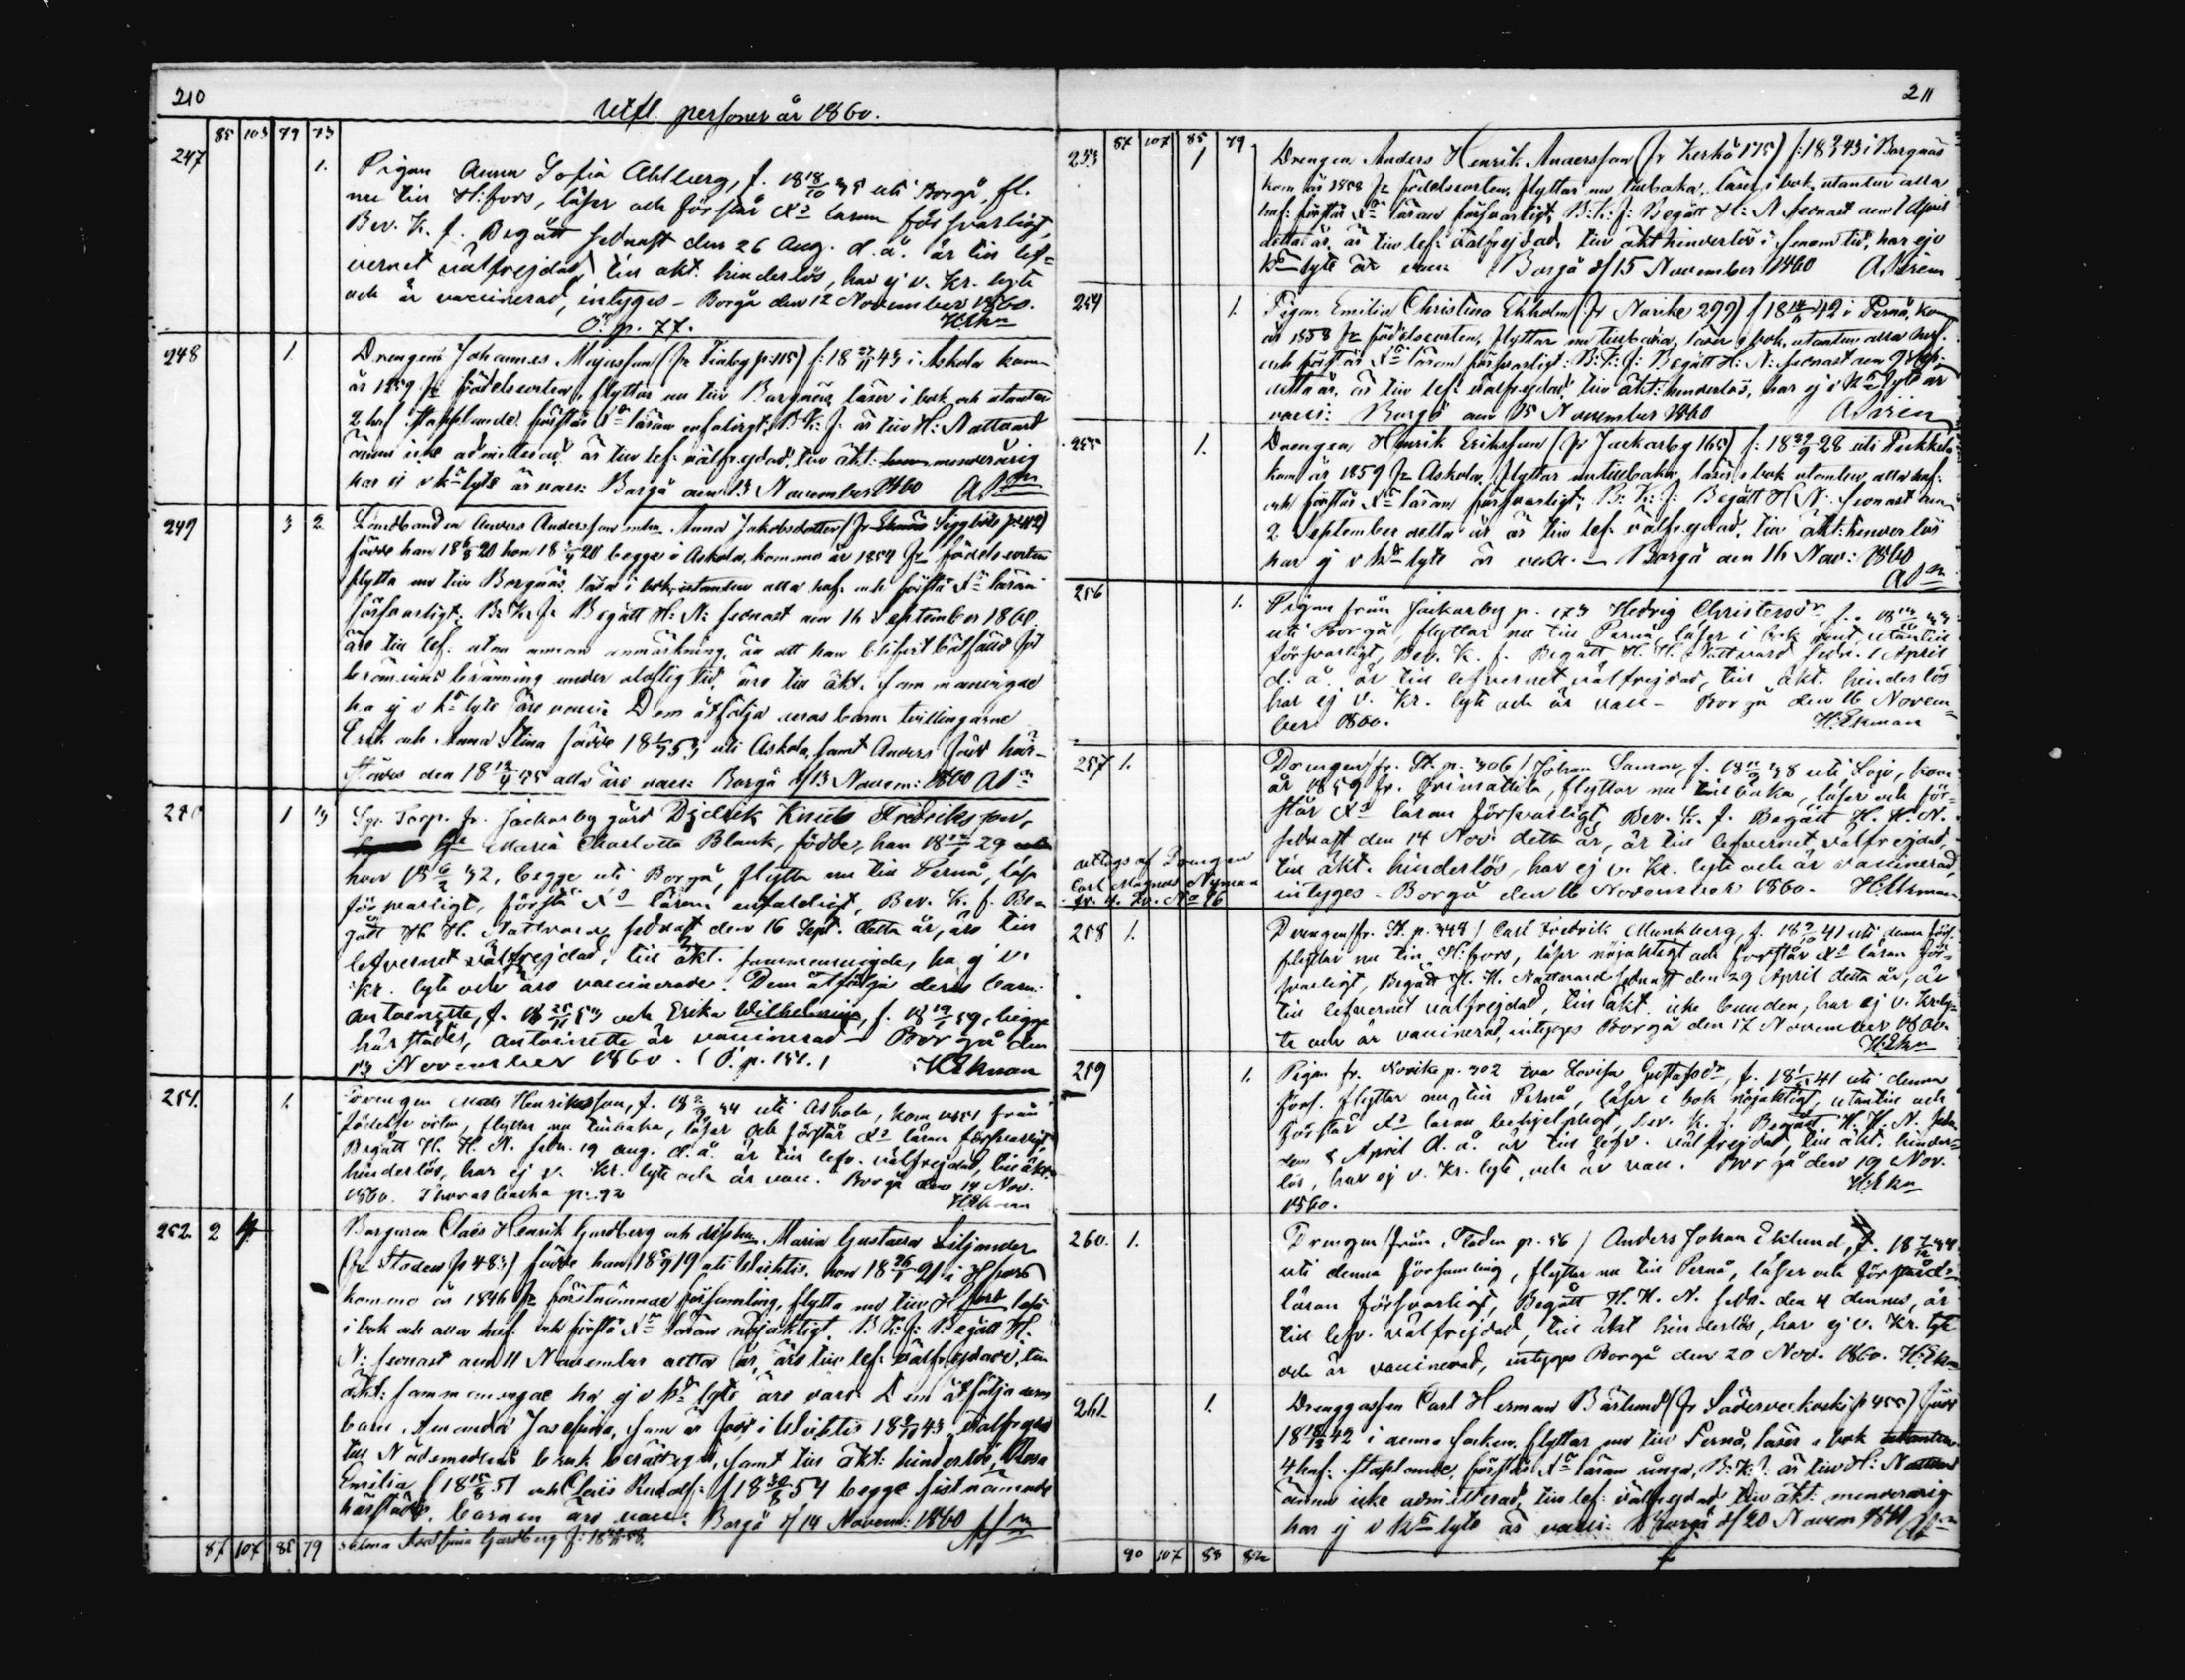 210
Utfl. personer år 1860.
85 103 79 73
247 1. Pigan Anna Sofia Ahlberg, f. 18 18/10 35 uti Borgå, fl.
nu till H:fors, läser och förstår Xi läran försvarligt,
Bev. K. f. Begått sednast den 26 Aug. d.å. är till lef-
vernet välfrejdad, till äkt. hinderlös, har ej v. Kr. lyte
och är vaccinerad, intyges - Borgå den 12 November 1860.
O. p. 77. HEkn
248 1. Drengen Johannes (fr p:115) f: 18 27/11 43 i Askola kom
år 1859 fr födelseorten, flyttar nu till Borgnäs, läser i bok och utantill
2 huf förstår Xi läran enfaldigt, B: K: f: är till H: Nattvard
ännu icke admitterad, är till lef: välfrejdad, till äkt: minderårig
har ej v kr lyte är vacc: Borgå den 13 November 1860
249 3 2 Anders Andersson Anna Jakobsdotter (fr p:112)
födde han 18 20 hon 18 20 begge i Askola, kommo år 1854 fr födelseorten
flytta nu till Borgnäs, läsa i bok, utantill alla huf. och förstå Xi läran
försvarligt. B: K: f: Begått H: N: sednast den 16 September 1860.
äro till lef. utan annan anmärkning, än att han blifvit bötfälld för
bränvins bränning under olaglig tid, äro till äkt. sammanvigde
ha ej v kr lyte äro vacci: Dem åtfölja deras barn tvillingarne
Erik och Anna Stina födde 18 53 uti Askola, samt Anders född här-
städes den 18 12/4 55 alla äro vacc: Borgå d/13 Novem: 1860
250 1 3 Torp. fr. Jackarby gård Didrik Knuts Fredriksson,
Maria Charlotta Blank, födde, han 18 29
hon 18 6/2 32, begge uti Borgå, flytta nu till Pernå, läsa
försvarligt, förstå Xi läran enfaldigt, Bev. K. f. Be-
gått H. H. Nattvard sednast den 16 Sept. detta år, äro till
lefvernet välfrejdad, till äkt. sammanvigde, ha ej v.
Kr. lyte och äro vaccinerade. Dem åtfölja deras barn:
Antoinette, f. 18 25/11 53 och Erika Wilhelmina, f. 18 19/1 59, begge
härstädes, Antoinette är vaccinerad - Borgå den
13 November 1860. (O. p. 151.) HEkman
251. 1. Drengen Mats Henriksson, f. 18 2/3 34 uti Askola, kom från
födelse orten, flyttar nu tillbaka, läser och förstår Xi läran försvarligt,
Begått H. H. N. sedn. 19 Aug. d. å. är till lefv. välfrejdad, till äkt.
hinderlös, har ej v. Kr. lyte och är vacc. Borgå den 14 Nov.
1860. p. 92 HEkman
252 2 4 Borgaren Claës Henrik Gardberg och dess hu Maria Gustava Liljander
(fr Staden p 483) födde han 18 5/9 19 uti Wichtis, hon 18 26/1 21 i H:fors
kommo år 1846 fr förstnämnde församling, flytta nu till H:fors läsa
i bok och alla huf. och förstå Xi läran nöjaktigt. B: K: f: Begått H:
N: sednast den 11 November detta år, äro till lef: välfrejdade, till
äkt: sammanvigde ha ej v kr lyte äro vacc: Dem åtfölja deras
barn Amanda Josefina, som är född i Wichtis 18 43, välfrejdad
till Nådemedlens bruk berättigad, samt till äkt: hinderlös, Rosa
Emilia f 18 15/8 51 och Claës Rudolf: f 18 30/8 54 begge sistnämnde
härstädes, barnen äro vacc: Borgå d/14 Novem: 1860
Selma Josefina Gardberg f: 18 58.
87 107 85 79
211
87 107 85 79
253 1 Drengen Anders Henrik Andersson (fr Kerkö 175) f: 18 43 i Borgnäs
kom år 1858 fr födelseorten, flyttar nu tillbaka, läser i bok, utantill alla
huf: förstår Xi läran försvarligt; B: K: f: Begått H: N sednast den 1 April
detta år, är till lef: välfrejdad, till äkt hinderlös i sinom tid, har ej v
kr lyte är vacc: Borgå d/15 November 1860
254 1. Pigan Emilia Christina Ekholm (fr Norike 299) f 18 42 i Pernå, kom
år 1858 fr födelseorten, flyttar nu tillbaka, läser i bok, utantill alla huf.
och förstår Xi läran försvarligt: B: K: f: Begått H: N: sednast den 9 Sep:
detta år, är till lef: välfrejdad, till äkt: hinderlös, har ej v kr lyte är
vacci: Borgå den 15 November 1860
255 1. Drengen Henrik Eriksson (fr Jackarby 165) f: 18 29/9 28 uti Pukkila
kom år 1859 fr Askola, flyttar nu tillbaka, läser i bok utantill alla huf:
och förstår Xi läran försvarligt; B: K: f: Begått H N: sednast den
2 September detta år är till lef: välfrejdad, till äkt: hinderlös
har ej v kr lyte är vacc. - Borgå den 16 Nov: 1860
256 1. Pigan från Jackarby p. 173 Hedvig Christersdr, f. 18 33
uti Borgå, flyttar nu till Pernå, läser i bok rent, utantill
försvarligt, Bev. K. f. Begått H. H. Nattvard sedn. 1 April
d. å. är till lefvernet välfrejdad, till äkt. hinderlös
har ej v. Kr. lyte och är vacc - Borgå den 16 Novem-
ber 1860. H:Ekman
257 1. Drengen (fr. St. p. 306) Johan f. 18 38 uti Lojo, kom
år 1859 fr. Orimattila, flyttar nu tillbaka, läser och för-
står Xi läran försvarligt, Bev. K. f. Begått H. H. N.
sednast den 14 Nov. detta år, är till lefvernet välfrejdad,
till äkt. hinderlös, har ej v. Kr. lyte och är vaccinerad,
intyges - Borgå den 16 November 1860. H:Ekman
uttogs af Drengen
Carl Magnus Nyman
258 1. Drengen (fr. St. p. 448) Carl Fredrik Munkberg, f. 18 9/10 41 uti denna förs.
flyttar nu till H:fors, läser nöjaktigt och förstår Xi läran för-
svarligt, Begått H. H. Nattvard sednast den 29 April detta år, är
till lefvernet välfrejdad, till äkt. icke bunden, har ej v. Kr. ly-
te och är vaccinerad, intyges Borgå den 17 November 1860.
H:Ekn
259 1. Pigan fr. Norike p. 302 Eva Lovisa Gustafsdr, f. 18 41 uti denna
förs. flyttar nu till Pernå, läser i bok nöjaktigt, utantill och
förstår Xi läran behjelpligt, Bev. K. f. Begått H. H. N. sedn.
den 8 April d. å. är till lefv. välfrejdad, till äkt. hinder-
lös, har ej v. Kr. lyte, och är vacc. Borgå den 19 Nov.
1860. H:Ekn
260. 1. Drengen (från Staden p. 56) Anders Johan Eklund, f. 18 7/12 34
uti denna församling, flyttar nu till Pernå, läser och förstår Xi
läran försvarligt, Begått H. H. N. sedn. den 4 dennes, är
till lefv. välfrejdad, till äkt hinderlös, har ej v. Kr. lyte
och är vaccinerad, intyges Borgå den 20 Nov. 1860. H:Ekn
261 1. Drenggossen Carl Herman Bärlund (fr p 455) född
18 42 i denna socken, flyttar nu till Pernå, läser i bok utantill
4 huf: förstår Xi läran ringa, B: K: f: är till H: Nattvard
ännu icke admitterad, till lef: välfrejdad till äkt: minderårig
har ej v kr lyte är vacci: Borgå d/20 Novem 1860
90 107 88 82